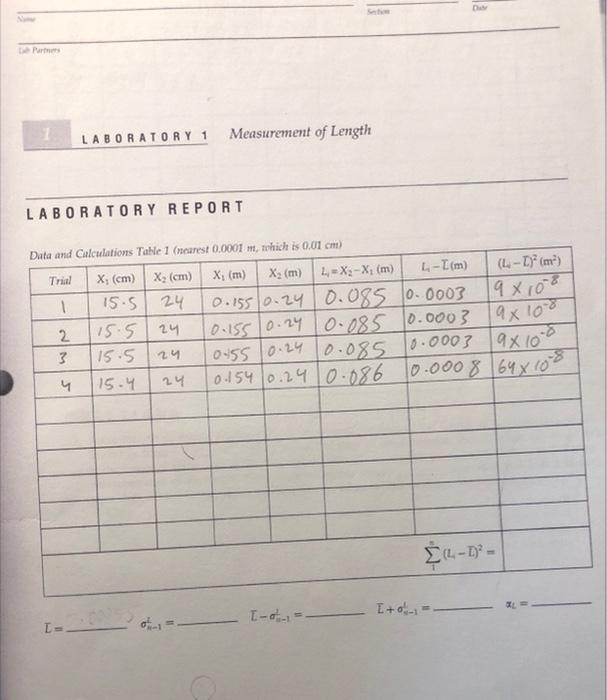 Name
Section
Date
Lab Partners
1 LABORATORY 1 Measurement of Length
LABORATORY REPORT
Data and Calculations Table 1 (nearest 0.0001 m, which is 0.01 cm)
Trial X₁ (cm) X₂ (cm) X₁ (m) X₂ (m) Lᵢ = X₂ − X₁ (m) Lᵢ − L̅ (m) (Lᵢ − L̅)² (m²)
1 15.5 24 0.155 0.24 0.085 0.0003 9 × 10⁻⁸
2 15.5 24 0.155 0.24 0.085 0.0003 9 × 10⁻⁸
3 15.5 24 0.155 0.24 0.085 0.0003 9 × 10⁻⁸
4 15.4 24 0.154 0.24 0.086 0.0008 64 × 10⁻⁸
∑ₙ₁ (Lᵢ − L̅)² =
L̅ = σᴸₙ₋₁ = L̅ − σᴸₙ₋₁ = L̅ + σᴸₙ₋₁ = αL =